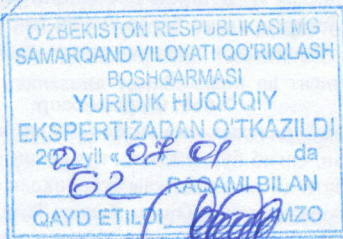 O'ZBEKISTON RESPUBLIKASI MG
SAMARQAND VILOYATI QO'RIQLASH
BOSHQARMASI
YURIDIK HUQUQIY
EKSPERTIZADAN O'TKAZILDI
2022 yil « 07 01 da
62 RAQAMI BILAN
QAYD ETILDI IMZO